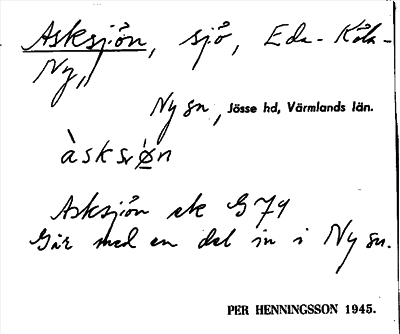 Asksjön, sjö, Eda- Köla-
Ny,
Ny sn, Jösse hd, Värmlands län.
Asksjön ek G74
Går med en del in i Ny sn.
PER HENNINGSSON 1945.